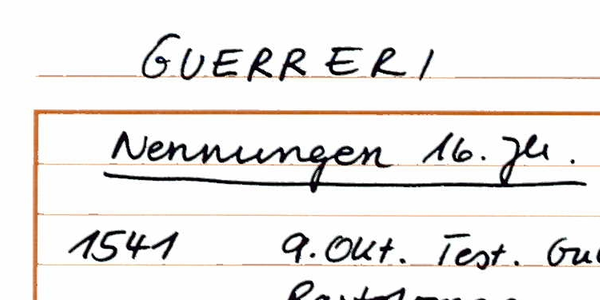 GUERRERI
Nennungen 16. Jh.
1541 9. Okt. Test.